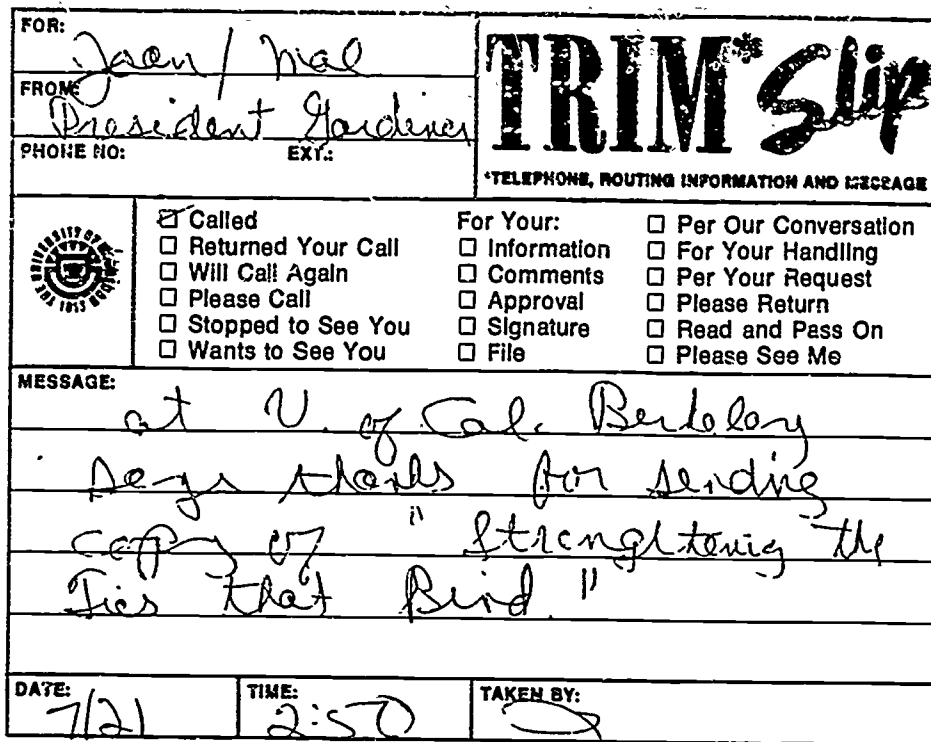 FOR: Joan / Mal
FROM: President Gardiner
PHONE NO: EXT.:
TRIM* Slip
*TELEPHONE, ROUTING INFORMATION AND MESSAGE
THE UNIVERSITY OF MICHIGAN
1817
☑ Called
☐ Returned Your Call
☐ Will Call Again
☐ Please Call
☐ Stopped to See You
☐ Wants to See You
For Your:
☐ Information
☐ Comments
☐ Approval
☐ Signature
☐ File
☐ Per Our Conversation
☐ For Your Handling
☐ Per Your Request
☐ Please Return
☐ Read and Pass On
☐ Please See Me
MESSAGE:
at U. of Cal. Berkeley
says thanks for sending
copy of "Strenghtening the
Ties that Bind."
DATE: 7/21
TIME: 2:50
TAKEN BY: